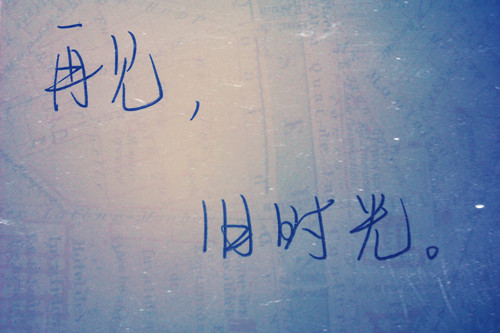 再见，
旧时光。